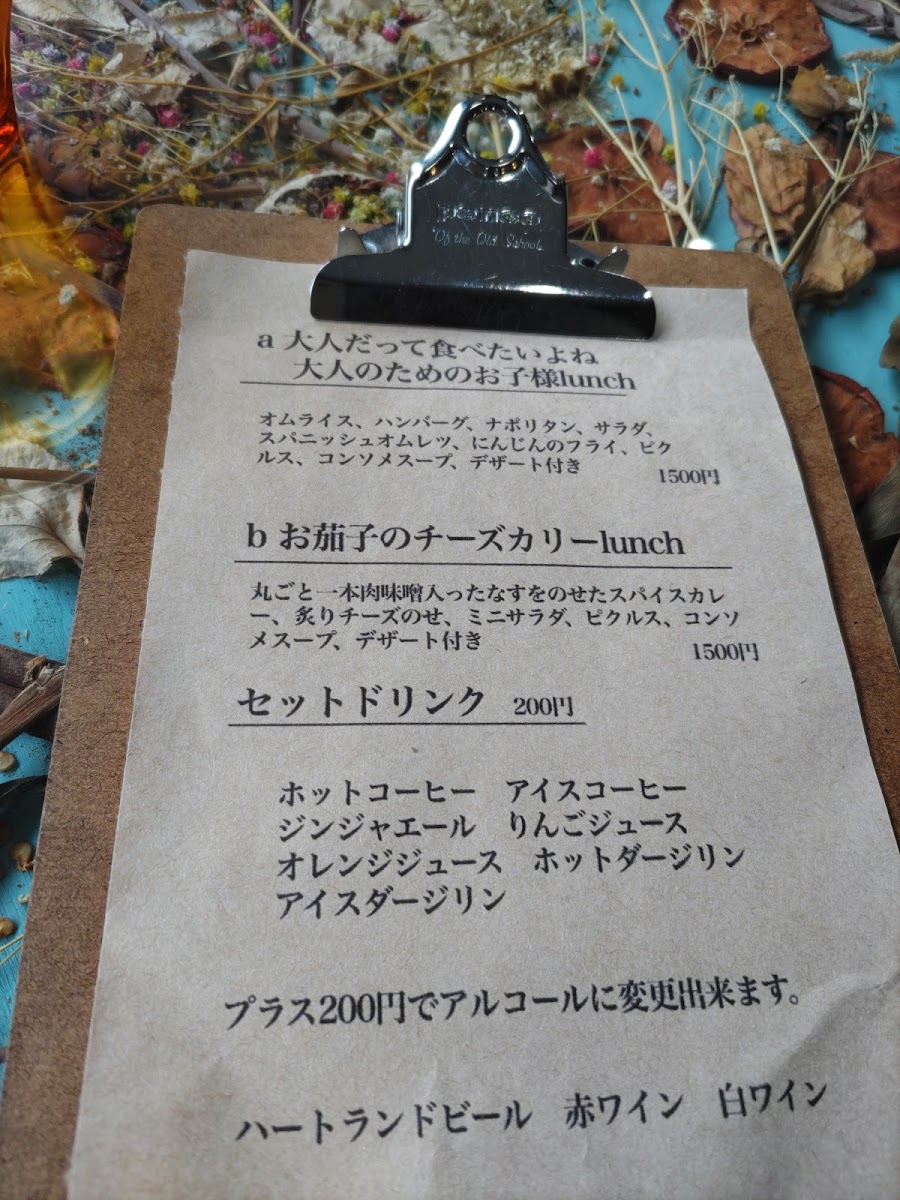 'Of the Old School.
a 大人だって食べたいよね
大人のためのお子様lunch
オムライス、ハンバーグ、ナポリタン、サラダ、
スパニッシュオムレツ、にんじんのフライ、ピク
ルス、コンソメスープ、デザート付き
1500円
b お茄子のチーズカリーlunch
丸ごと一本肉味噌入ったなすをのせたスパイスカレ
ー、炙りチーズのせ、ミニサラダ、ピクルス、コンソ
メスープ、デザート付き
1500円
セットドリンク 200円
ホットコーヒー アイスコーヒー
ジンジャエール りんごジュース
オレンジジュース ホットダージリン
アイスダージリン
プラス200円でアルコールに変更出来ます。
ハートランドビール 赤ワイン 白ワイン